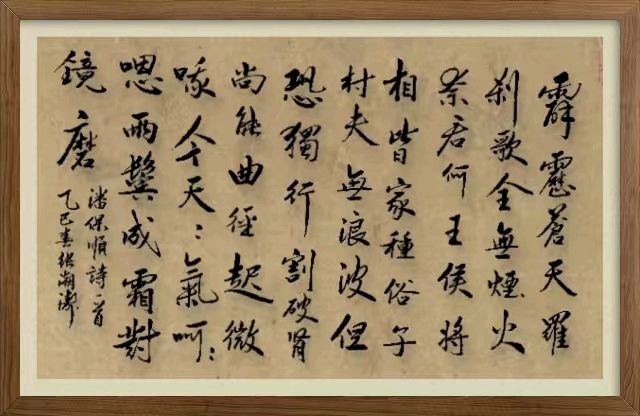 霹靂蒼天羅
刹歌全無煙火
奈君何王侯將
相皆家種俗子
村夫無浪波但
恐獨行割破腎
尚能曲徑起微
咳今天〻氣呵〻
嗯兩鬢成霜對
鏡磨
潘保順詩一首
乙巳春